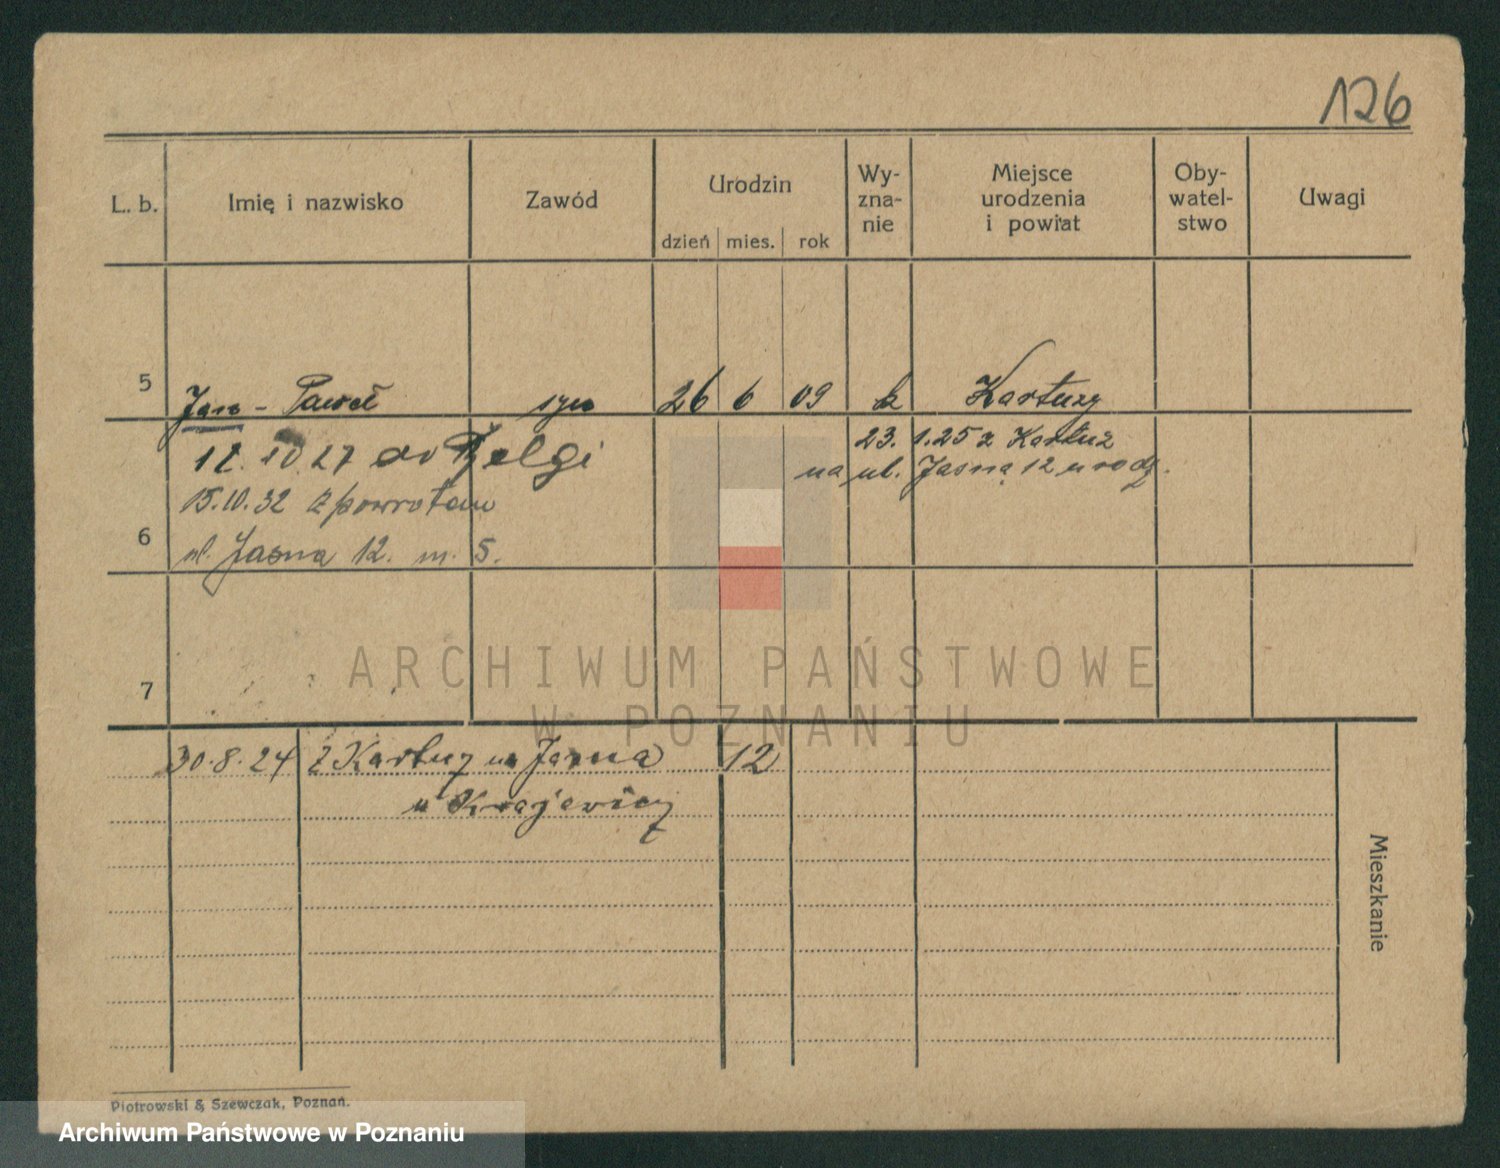 126
L. b. Imię i nazwisko Zawód Urodzin Wy- zna- nie Miejsce urodzenia i powiat Oby- watel- stwo Uwagi
dzień mies. rok
5 Jan - Paweł syn 26 6 09 k Kartuzy
12. 10 27 do Belgi
23. 1.25 z Kartuz
na ul. Jasną 12 u rodz.
15.10.32 z powrotem
6 ul. Jasna 12. m. 5.
7
ARCHIWUM PAŃSTWOWE
W POZNANIU
30.8.24 z Kartuz na Jasna 12
u
Mieszkanie
Piotrowski & Szewczak, Poznań.
Archiwum Państwowe w Poznaniu